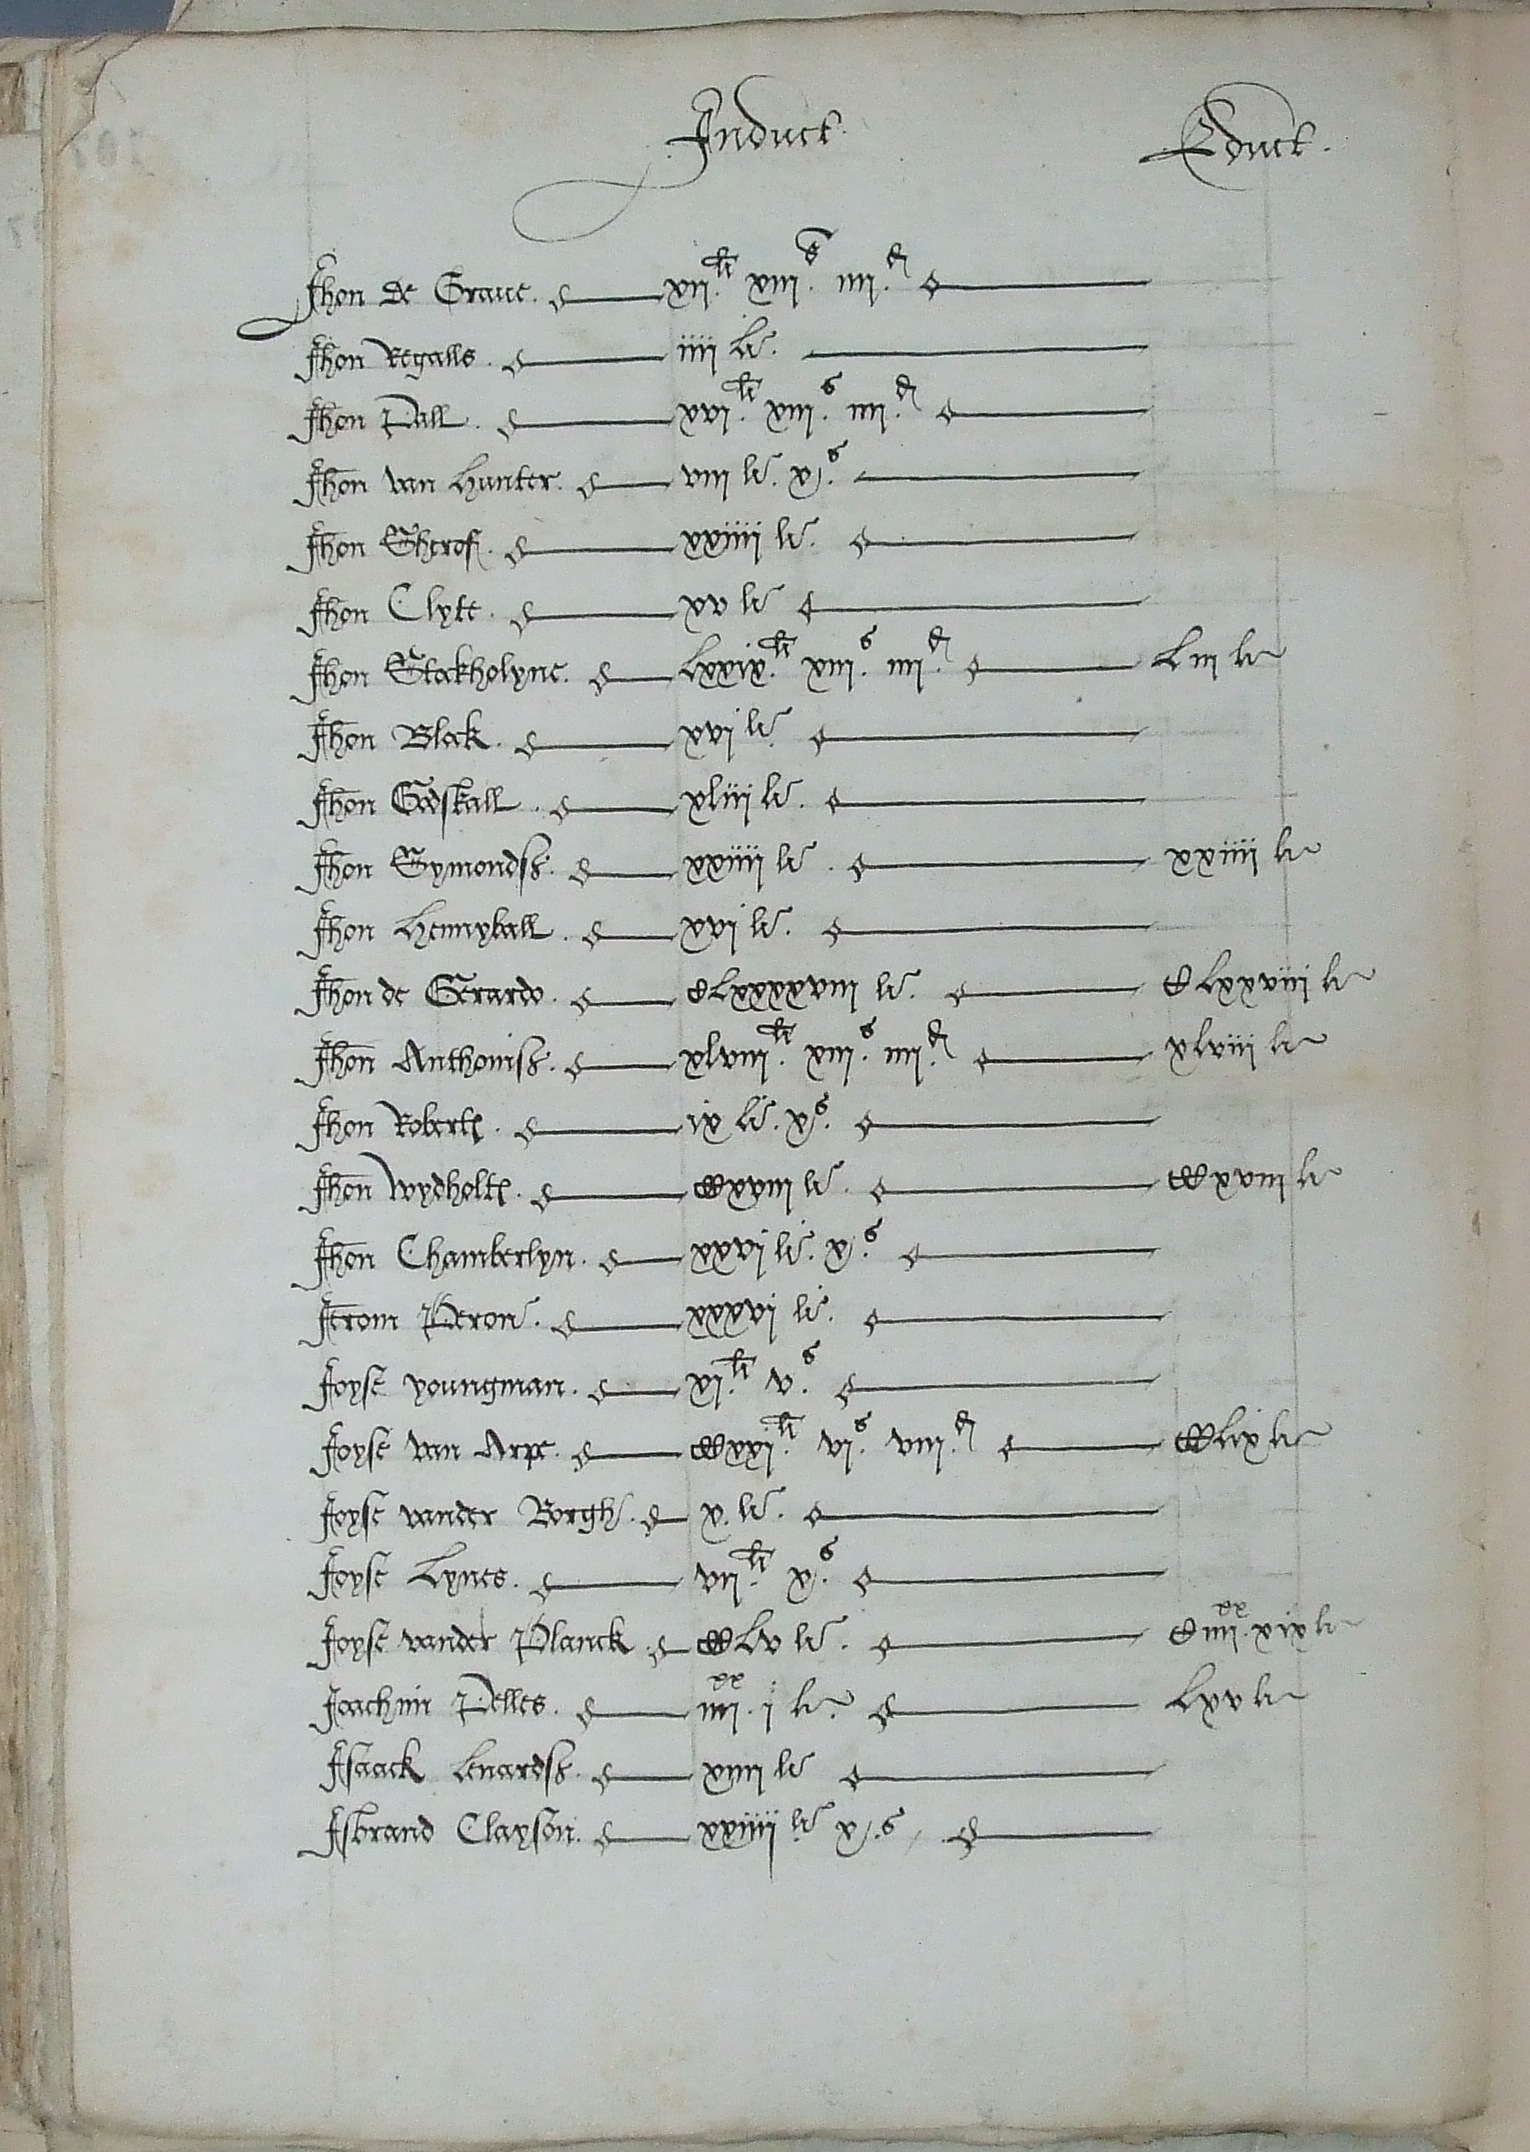 Induct. Educt.
Jhon de Graue. xii li. xiii s. iiii d.
Jhon Regalls. iiii li.
Jhon Pall. xvi li. xiii s. iiii d.
Jhon van Hunter. viii li. x s.
Jhon xxiiii li.
Jhon Clyte. xv li
Jhon Stockholyne. Lxxix li. xiii s. iiii d. Liii li
Jhon Block. xvi li.
Jhon Godskall. xliii li.
Jhon Symonds. xxiiii li. xxiiii li
Jhon Hennyball. xvi li.
Jhon de Gerardo. CLxxxxviii li. CLxxviii li
Jhon Anthonis. xlviii li. xiii s. iiii d. xlviii li
Jhon Roberts. ix li. x s.
Jhon Wydholts. CCxviii li. CCxviii li
Jhon Chamberlyn. xxvi li. x s.
Jerom Peron. xxxvi li.
Joyse youngman. xi li. v s.
Joyse van Arpe. CCxxi li. vi s. viii d. CClix li
Joyse vander Borgh. x. li.
Joyse Lynes. vii li. x s.
Joyse vander Planck. CCLv li. C iiii xx. xix li
Joachim Pelles. iiii xx. i li. Lxv li
Isaack Lenards. xiiii li
Isbrand Clayson. xxiiii li x s.